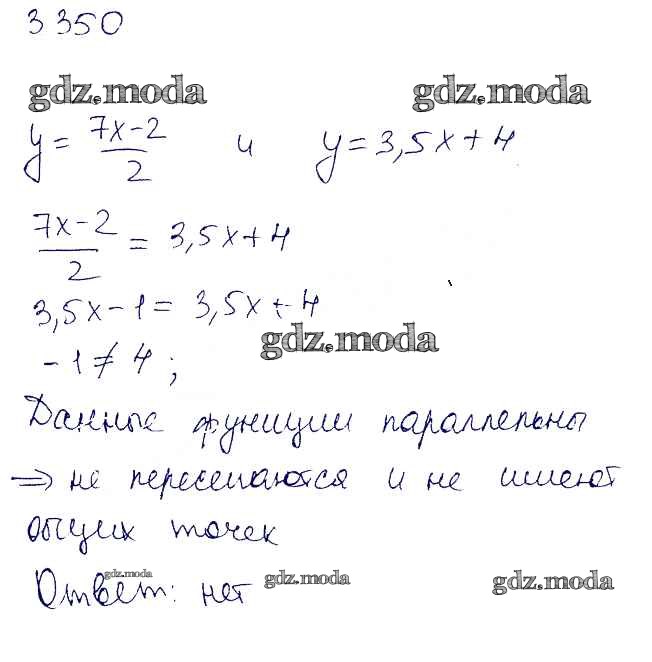 3 350
gdz.moda gdz.moda
y = (7x-2)/2 и y = 3,5x + 4
(7x-2)/2 = 3,5x + 4
3,5x - 1 = 3,5x + 4
gdz.moda
-1 ≠ 4 ;
Данные функции параллельны
=> не пересекаются и не имеют
общих точек
gdz.moda gdz.moda gdz.moda
Ответ: нет